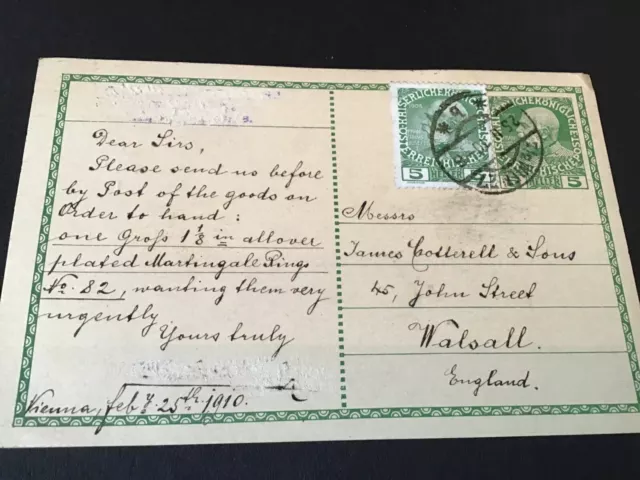 Dear Sirs,
Please send us before
by Post of the goods on
Order to hand:
one Groß 1 1/8 in allover
plated Martingale Rings
No. 82, wanting them very
urgently
Yours truly
Vienna, feb y. 25th 1910.
5
5
Messrs
James Cotterell & Sons
45, John Street
Walsall.
England.